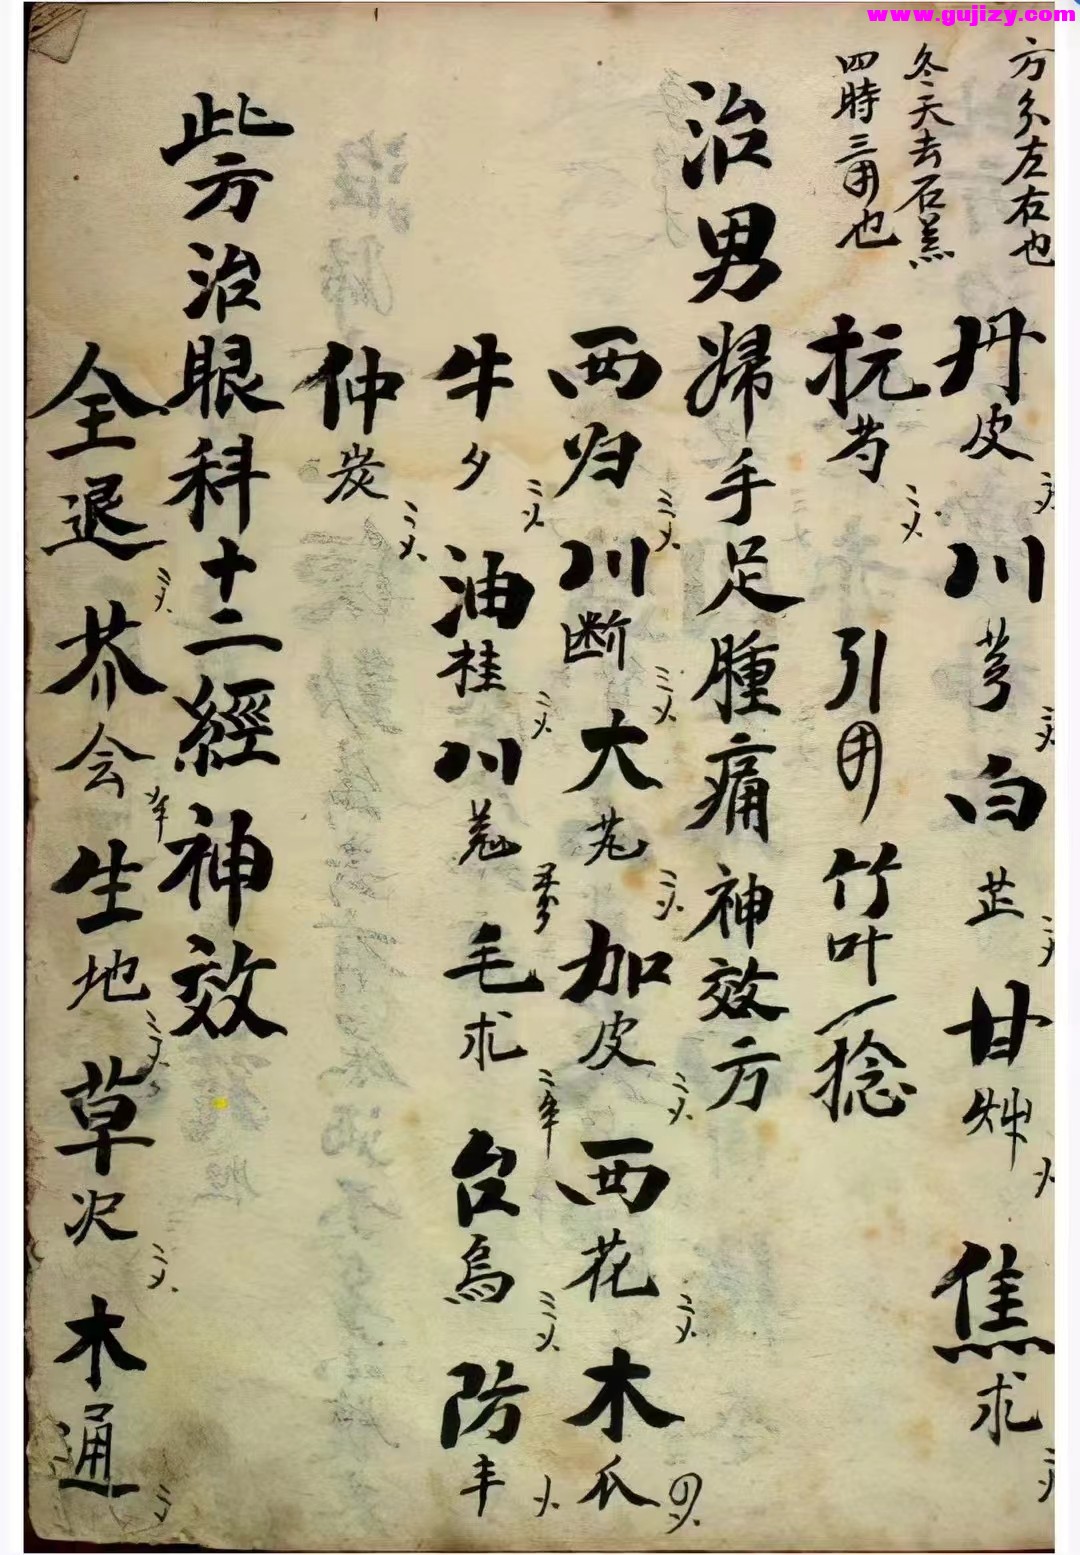 www.gujizy.com
方分左右也
冬天去石羔
四時三用也
丹皮 川芎 白芷 甘艸 焦求
抗芍 引用竹叶一捻
治男婦手足腫痛神效方
西归 川断 大艽 加皮 西花 木爪
牛夕 油桂 川羌 毛求 台烏 防丰
仲炭
此方治眼科十二經神效
全退 芥会 生地 草次 木通